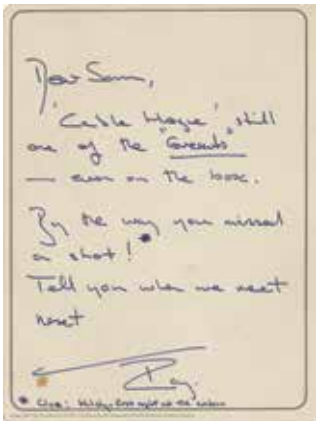 Dear Sam,
'Cable Hogue' still
one of the "Greats"
— even on the box.
By the way you missed
a shot! *
Tell you when we meet
next
* Clue: